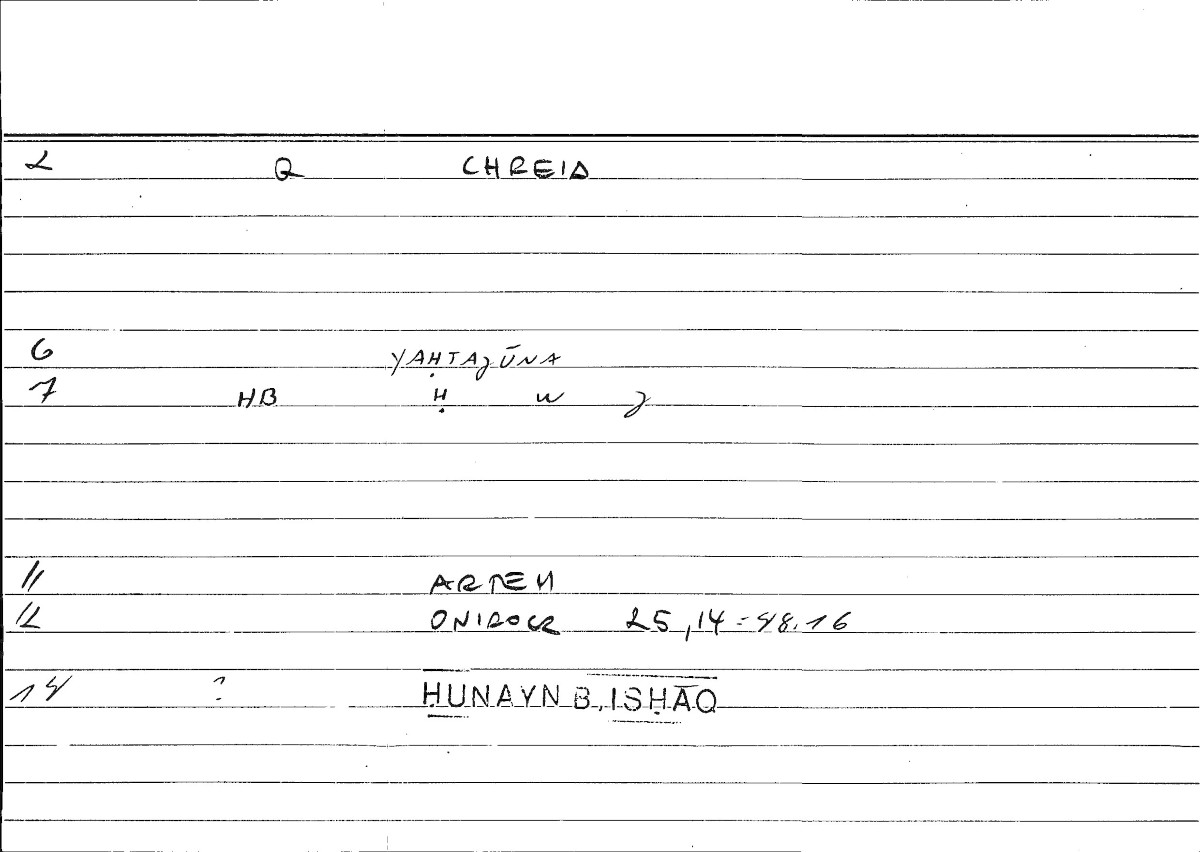 2 Q CHREIA
6 YAḤTAJŪNA
7 HB Ḥ W J
11 ARTEM
12 ONIROCR 25,14 = 48.16
14 ? ḤUNAYN B. ISḤĀQ